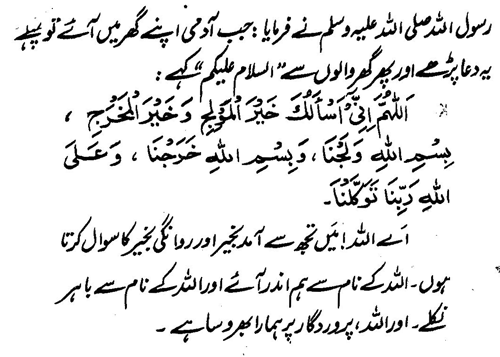 رسول اللہ صلی اللہ علیہ وسلم نے فرمایا: جب آدمی اپنے گھر میں آئے تو پہلے
یہ دعا پڑھے اور پھر گھر والوں سے "السلام علیکم" کہے:
اَللّٰهُمَّ اِنِّيْ اَسْاَلُكَ خَيْرَ الْمَوْلَجِ وَخَيْرَ الْمَخْرَجِ ،
بِسْمِ اللهِ وَلَجْنَا ، وَبِسْمِ اللهِ خَرَجْنَا ، وَعَلَى
اللهِ رَبِّنَا تَوَكَّلْنَا۔
اَے اللہ! مَیں تجھ سے آمد بخیر اور روانگی بخیر کا سوال کرتا
ہوں۔ اللہ کے نام سے ہم اندر آئے اور اللہ کے نام سے باہر
نکلے۔ اور اللہ، پروردگار پر ہمارا بھروسا ہے۔